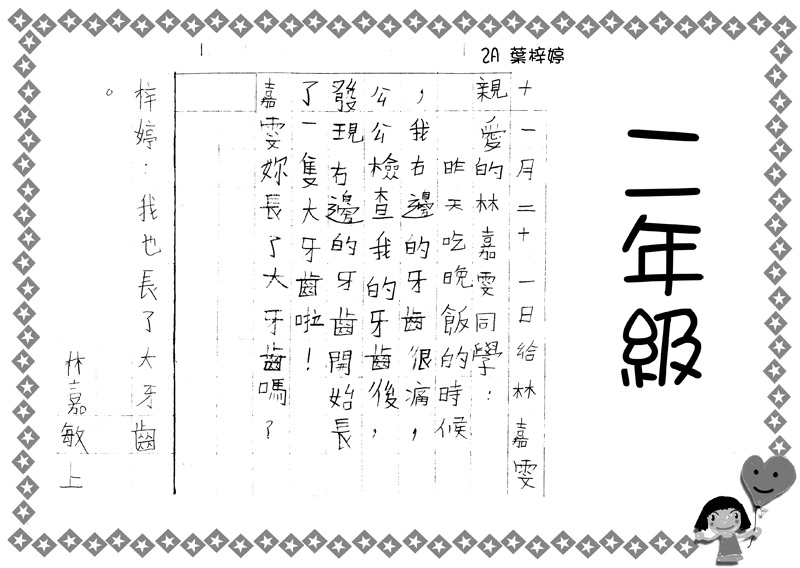 二年級
2A 葉梓婷
十一月二十一日給林嘉雯
親愛的林嘉雯同學：
昨天吃晚飯的時候
，我右邊的牙齒很痛，
公公檢查我的牙齒後，
發現右邊的牙齒開始長
了一隻大牙齒啦！
嘉雯妳長了大牙齒嗎？
梓婷：我也長了大牙齒
。
林嘉敏上